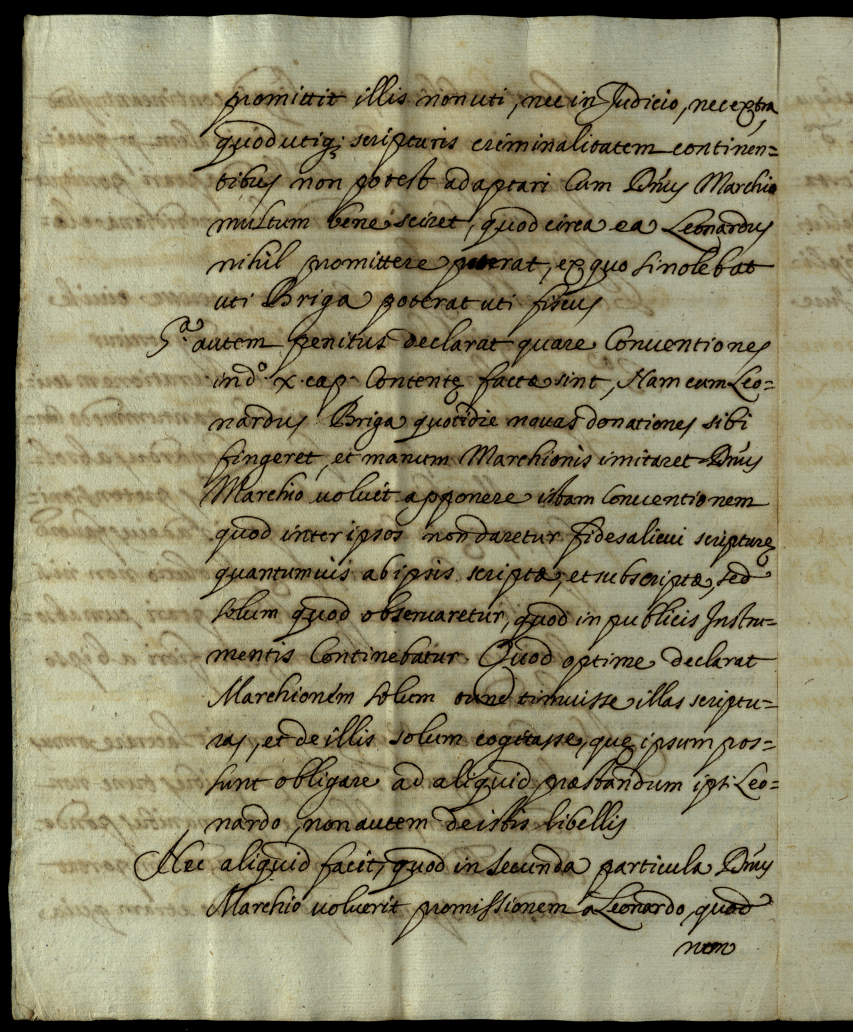 promittit illis non uti, nec in Judicio, nec extra,
quod utiq; scripturis criminalitatem continen=
tibus non potest adaptari Cum Dnus Marchio
multum bene sciret, quod circa ea Leonardus
nihil promittere poterat, ex quo si nolebat
uti Briga poterat uti fiscus
5.a autem penitus declarat quare Conventiones
in d.o x. cap. Contentę factæ sint, Nam cum Leo=
nardus Briga quotidie novas donationes sibi
fingeret, et manum Marchionis imitaret Dnus
Marchio voluit apponere istam Conventionem
quod inter ipsos non daretur fides alicui scripturę
quantumvis ab ipsis scriptæ, et subscriptæ, sed
solum quod observaretur, quod in publicis Instru=
mentis Continebatur. Quod optime declarat
Marchionem solum tunc timuisse illas scriptu=
ras, et de illis solum cogitasse, quę ipsum pos=
sunt obligare ad aliquid præstandum ipi Leo=
nardo, non autem de istis libellis
Nec aliquid facit, quod in secunda particula Dnus
Marchio voluerit promissionem a Leonardo, quod
non